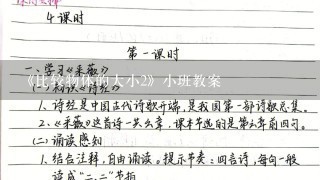 4课时
第一课时
一、学习《采薇》
《比较物体的大小2》小班教案
1、诗经是中国古代诗歌开端,是我国第一部诗歌总集。
2、《采薇》这首诗一共六章,课本节选的是第六章前四句。
(二)诵读感知
1、结合注释,自由诵读。提示节奏:四言诗,每句一般
读成“二、二”节拍